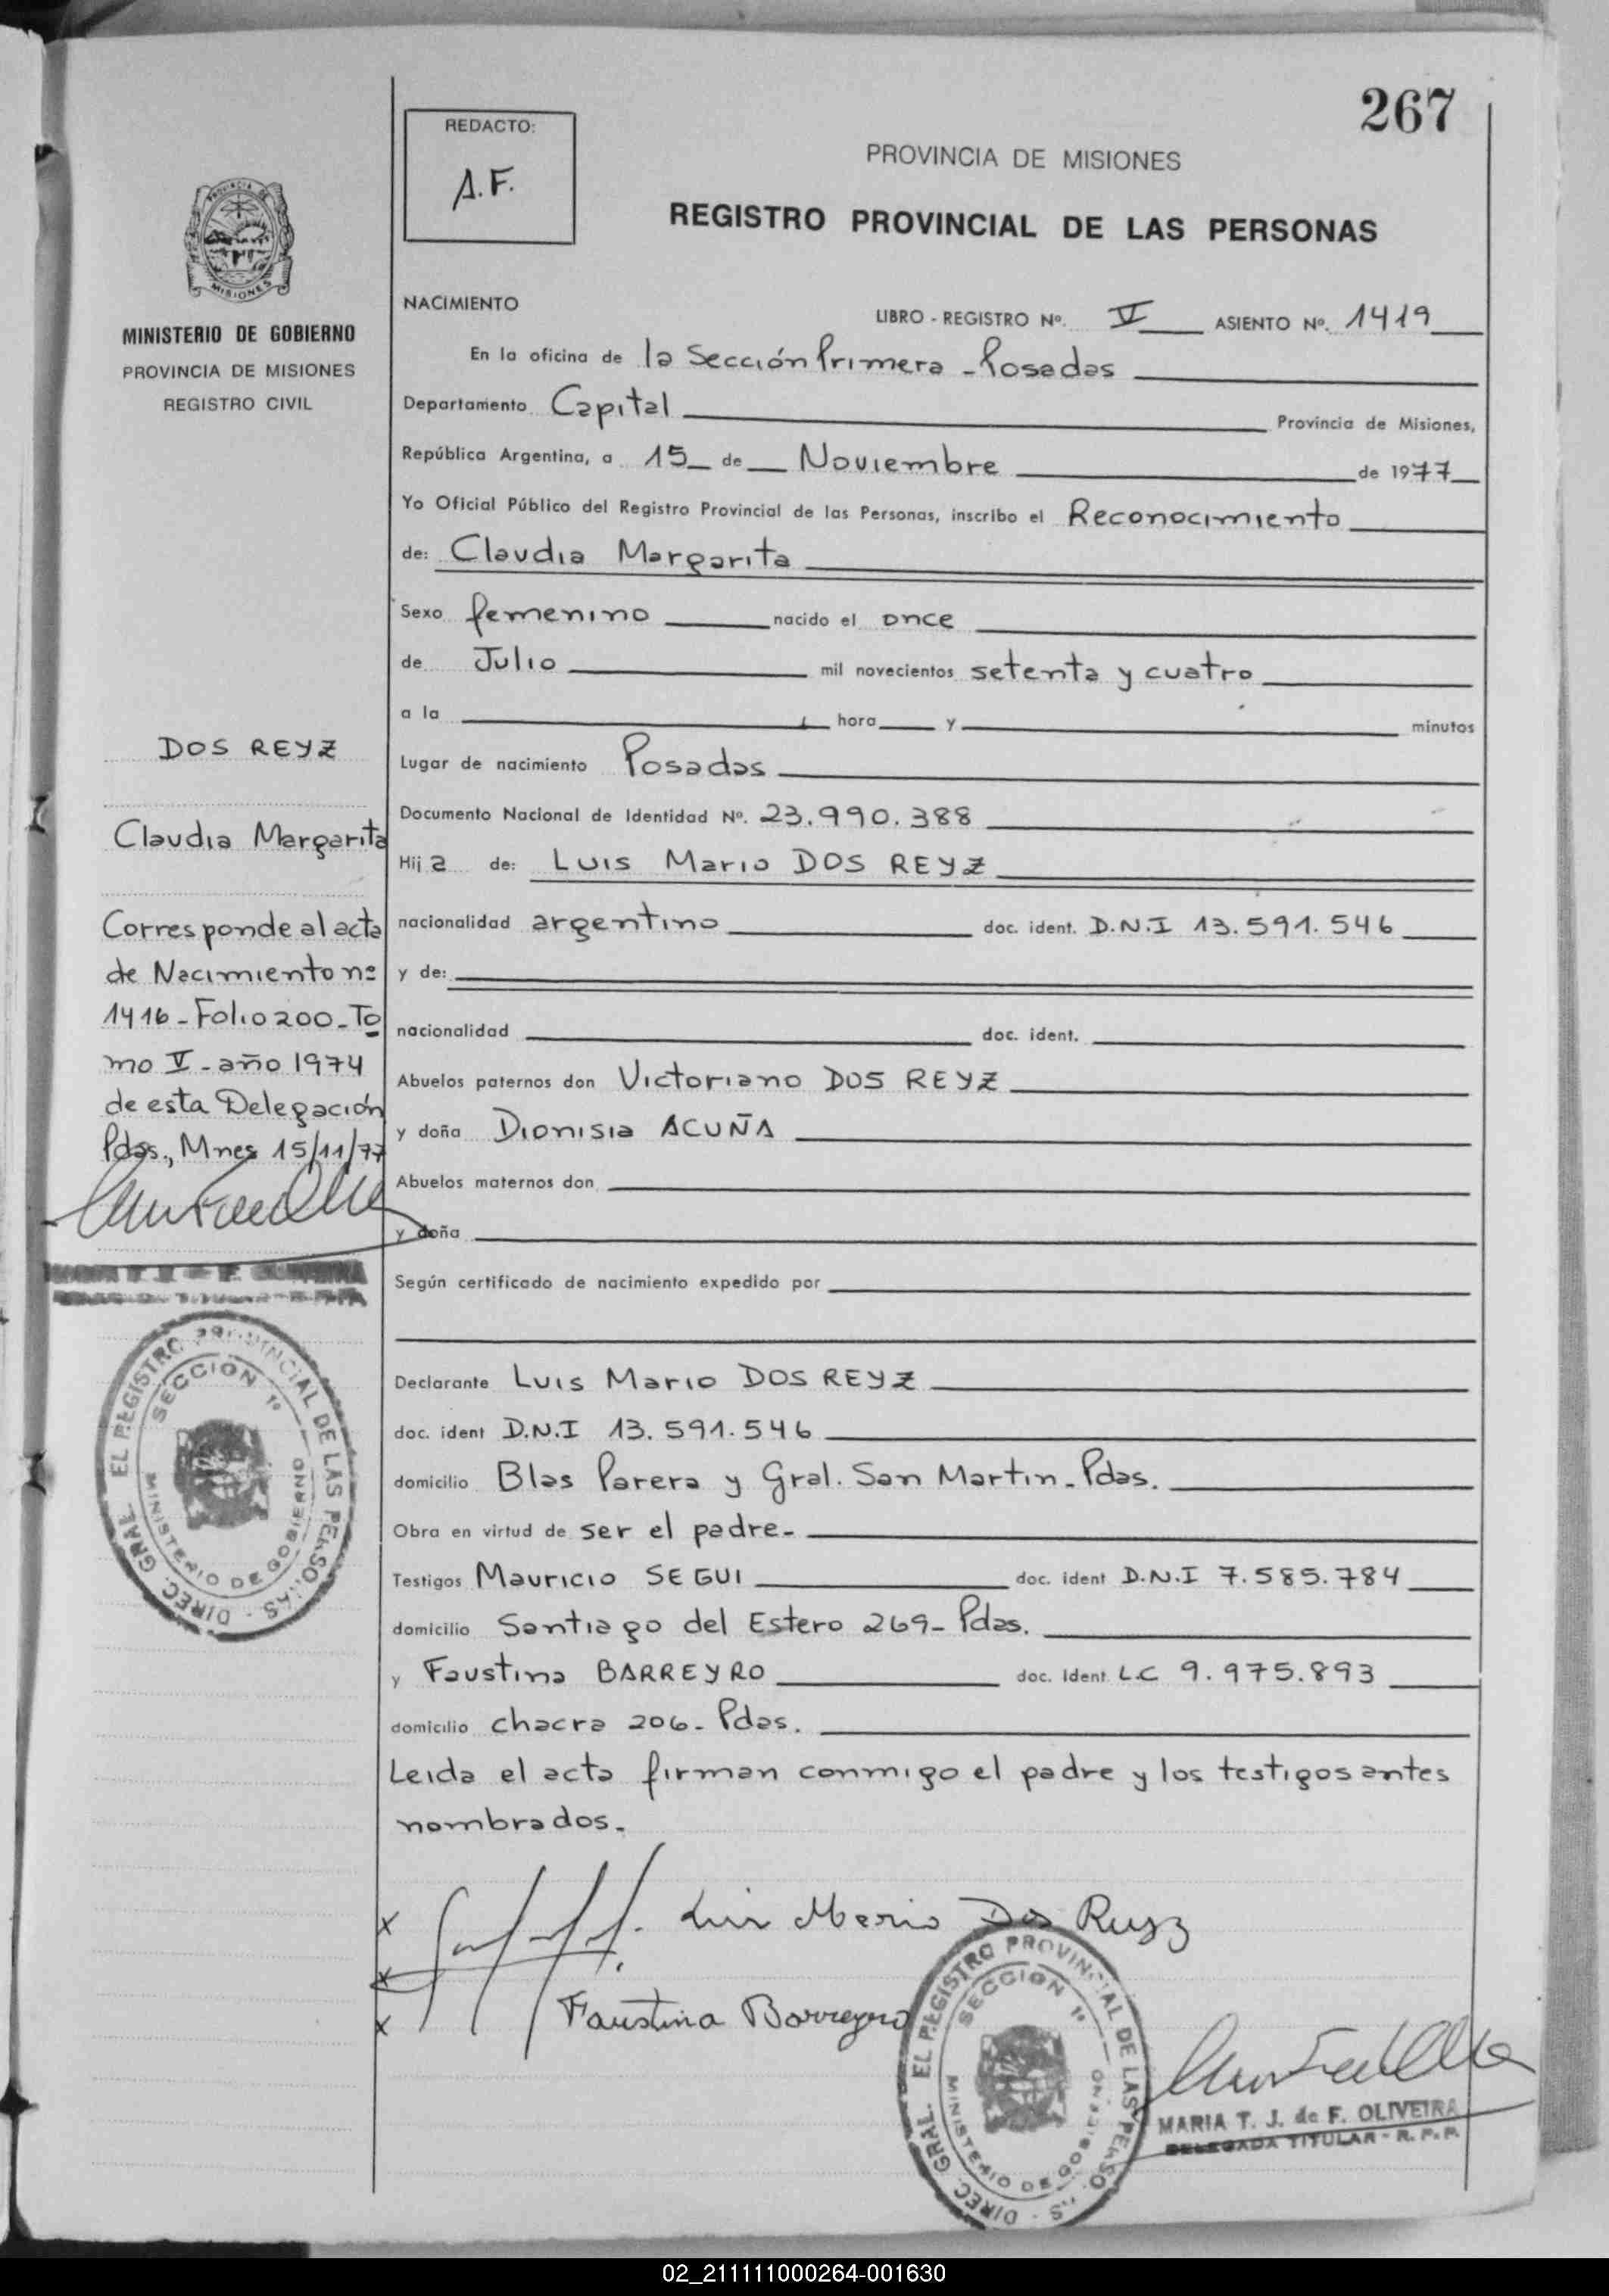 267
REDACTO:
A.F.
PROVINCIA DE MISIONES
REGISTRO PROVINCIAL DE LAS PERSONAS
MISIONES
MINISTERIO DE GOBIERNO
PROVINCIA DE MISIONES
REGISTRO CIVIL
DOS REYZ
Claudia Margarita
Corresponde al acta
de Nacimiento nº
1416-Folio 200-To
mo V-año 1974
de esta Delegación
Pdas., Mnes 15/11/77
DIREC. GRAL. EL REGISTRO PROVINCIAL DE LAS PERSONAS
SECCION 1ª
MINISTERIO DE GOBIERNO
NACIMIENTO
LIBRO - REGISTRO Nº. V ASIENTO Nº. 1419
En la oficina de la Sección Primera - Posadas
Departamento Capital Provincia de Misiones,
República Argentina, a 15 de Noviembre de 1977
Yo Oficial Público del Registro Provincial de las Personas, inscribo el Reconocimiento
de: Claudia Margarita
Sexo femenino nacido el once
de Julio mil novecientos setenta y cuatro
a la hora y minutos
Lugar de nacimiento Posadas
Documento Nacional de Identidad Nº. 23.990.388
Hija de: Luis Mario DOS REYZ
nacionalidad argentino doc. ident. D.N.I 13.591.546
y de:
nacionalidad doc. ident.
Abuelos paternos don Victoriano DOS REYZ
y doña Dionisia ACUÑA
Abuelos maternos don
y doña
Según certificado de nacimiento expedido por
Declarante Luis Mario DOS REYZ
doc. ident D.N.I 13.591.546
domicilio Blas Parera y Gral. San Martin - Pdas.
Obra en virtud de ser el padre-
Testigos Mauricio SEGUI doc. ident D.N.I 7.585.784
domicilio Santiago del Estero 269- Pdas.
y Faustina BARREYRO doc. Ident. L.C 9.975.893
domicilio chacra 206- Pdas.
Leida el acta firman conmigo el padre y los testigos antes
nombrados.
x Luis Mario Dos Reyz
x
x Faustina Barreyro
DIREC. GRAL. EL REGISTRO PROVINCIAL DE LAS PERSONAS
SECCION 1ª
MINISTERIO DE GOBIERNO
MARIA T. J. de F. OLIVEIRA
DELEGADA TITULAR - R. P. P.
02_211111000264-001630